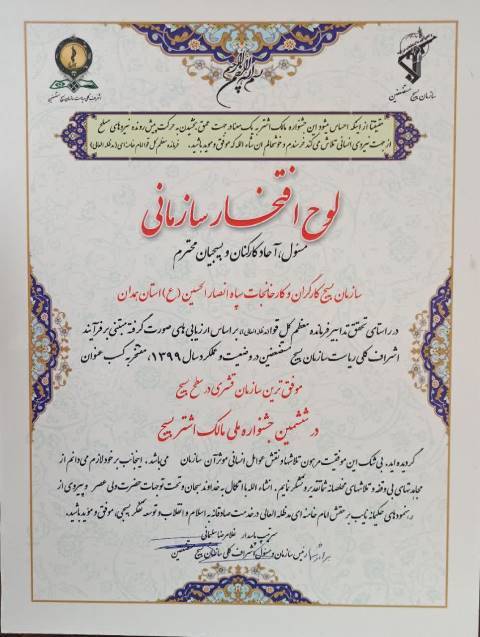 بسم الله الرحمن الرحیم
سازمان بسیج مستضعفین
اشراف کلی ریاست سازمان بسیج مستضعفین
حقیقتا از اینکه احساس میشود این جشنواره مالک اشتر به یک سنت در جهت عمق بخشیدن به حرکت پیش رونده نیروهای مسلح
از جهت نیروی انسانی تلاش می کند خرسندم و خوشحالم ان شاء الله که موفق و موید باشید. فرمانده معظم کل قوا امام خامنه ای (مدظله العالی)
لوح افتخار سازمانی
مسئول، آحاد کارکنان و بسیجیان محترم
سازمان بسیج کارگران و کارخانجات سپاه انصار الحسین (ع) استان همدان
در راستای تحقق تدابیر فرمانده معظم کل قوا (مدظله العالی) بر اساس ارزیابی های صورت گرفته مبتنی بر فرآیند
اشراف کلی ریاست سازمان بسیج مستضعفین در وضعیت و عملکرد سال ۱۳۹۹، مفتخر به کسب عنوان
موفق ترین سازمان قشری در سطح بسیج
در ششمین جشنواره ملی مالک اشتر بسیج
گردیده اید. بی شک این موفقیت مرهون تلاشها و نقش عوامل انسانی موثر آن سازمان می باشد، اینجانب بر خود لازم می دانم از
مجاهدتهای بی وقفه و تلاشهای مخلصانه شما تقدیر و تشکر نمایم. انشاء الله با اتکال به خداوند سبحان و تحت توجهات حضرت ولی عصر و پیروی از
رهنمودهای حکیمانه نایب بر حقش امام خامنه ای مدظله العالی در خدمت صادقانه به اسلام و انقلاب و توسعه تفکر بسیجی، موفق و موید باشید.
سرتیپ پاسدار غلامرضا سلیمانی
رئیس سازمان و مسئول اشراف کلی سازمان بسیج مستضعفین